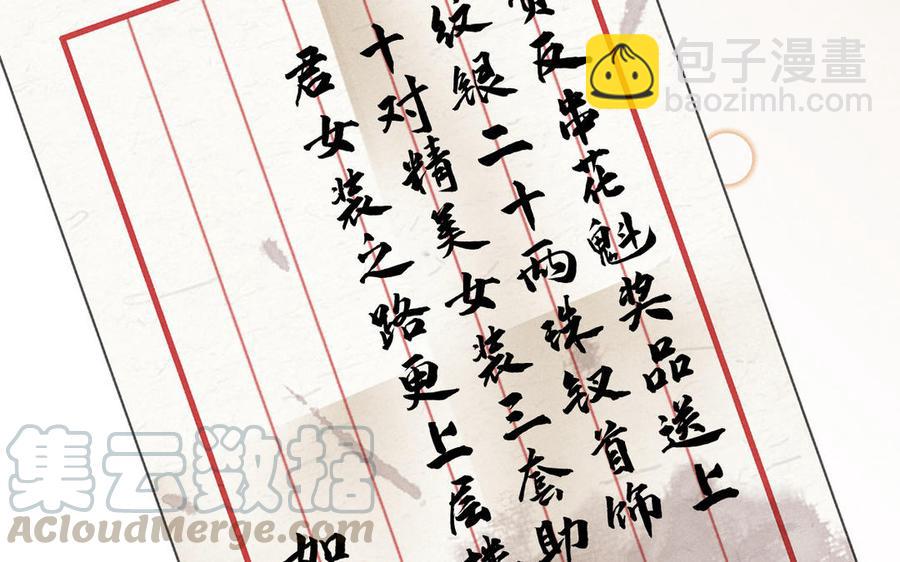 反串花魁奖品送上
纹银二十两珠钗首饰
十对精美女装三套助
君女装之路更上层
如
包子漫畫
baozimh.com
集云数据
AcloudMerge.com